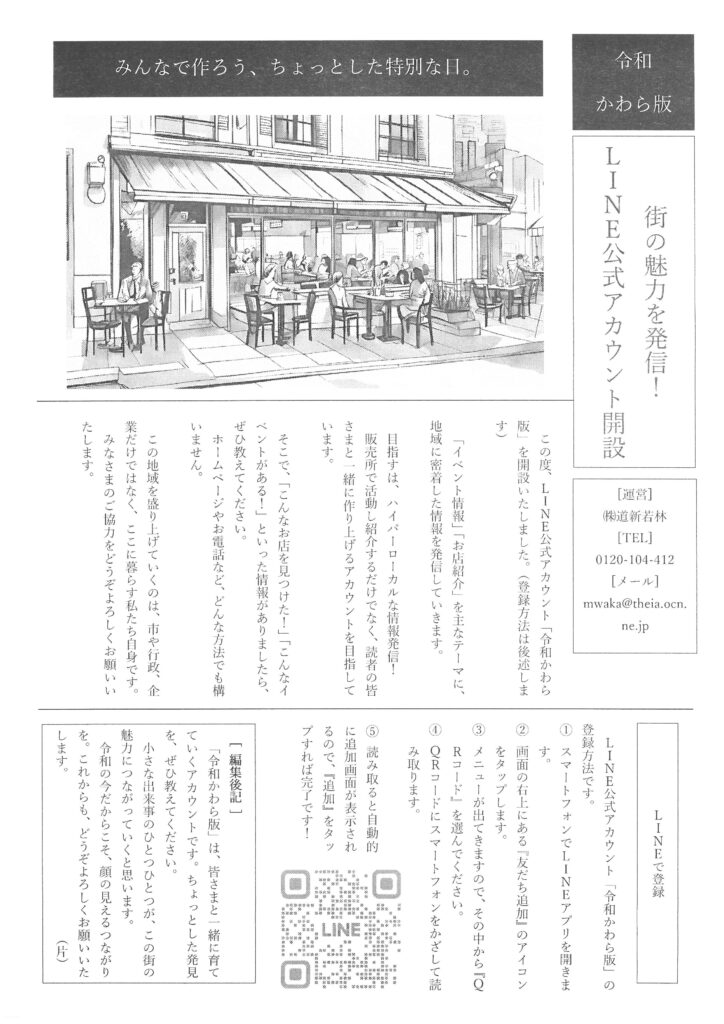 令和
かわら版
みんなで作ろう、ちょっとした特別な日。
街の魅力を発信！
LINE公式アカウント開設
[運営]
㈱道新若林
[TEL]
0120-104-412
[メール]
mwaka@theia.ocn.
ne.jp
この度、LINE公式アカウント「令和かわら
版」を開設いたしました。（登録方法は後述しま
す）
「イベント情報」「お店紹介」を主なテーマに、
地域に密着した情報を発信していきます。
目指すは、ハイパーローカルな情報発信！
販売所で活動し紹介するだけでなく、読者の皆
さまと一緒に作り上げるアカウントを目指して
います。
そこで、「こんなお店を見つけた！」「こんなイ
ベントがある！」といった情報がありましたら、
ぜひ教えてください。
ホームページやお電話など、どんな方法でも構
いません。
この地域を盛り上げていくのは、市や行政、企
業だけではなく、ここに暮らす私たち自身です。
みなさまのご協力をどうぞよろしくお願いい
たします。
LINEで登録
LINE公式アカウント「令和かわら版」の
登録方法です。
① スマートフォンでLINEアプリを開きま
す。
② 画面の右上にある『友だち追加』のアイコン
をタップします。
③ メニューが出てきますので、その中から『Q
Rコード』を選んでください。
④ QRコードにスマートフォンをかざして読
み取ります。
⑤ 読み取ると自動的
に追加画面が表示され
るので、『追加』をタッ
プすれば完了です！
LINE
[ 編集後記 ]
「令和かわら版」は、皆さまと一緒に育て
ていくアカウントです。ちょっとした発見
を、ぜひ教えてください。
小さな出来事のひとつひとつが、この街の
魅力につながっていくと思います。
令和の今だからこそ、顔の見えるつながり
を。これからも、どうぞよろしくお願いいた
します。
（片）